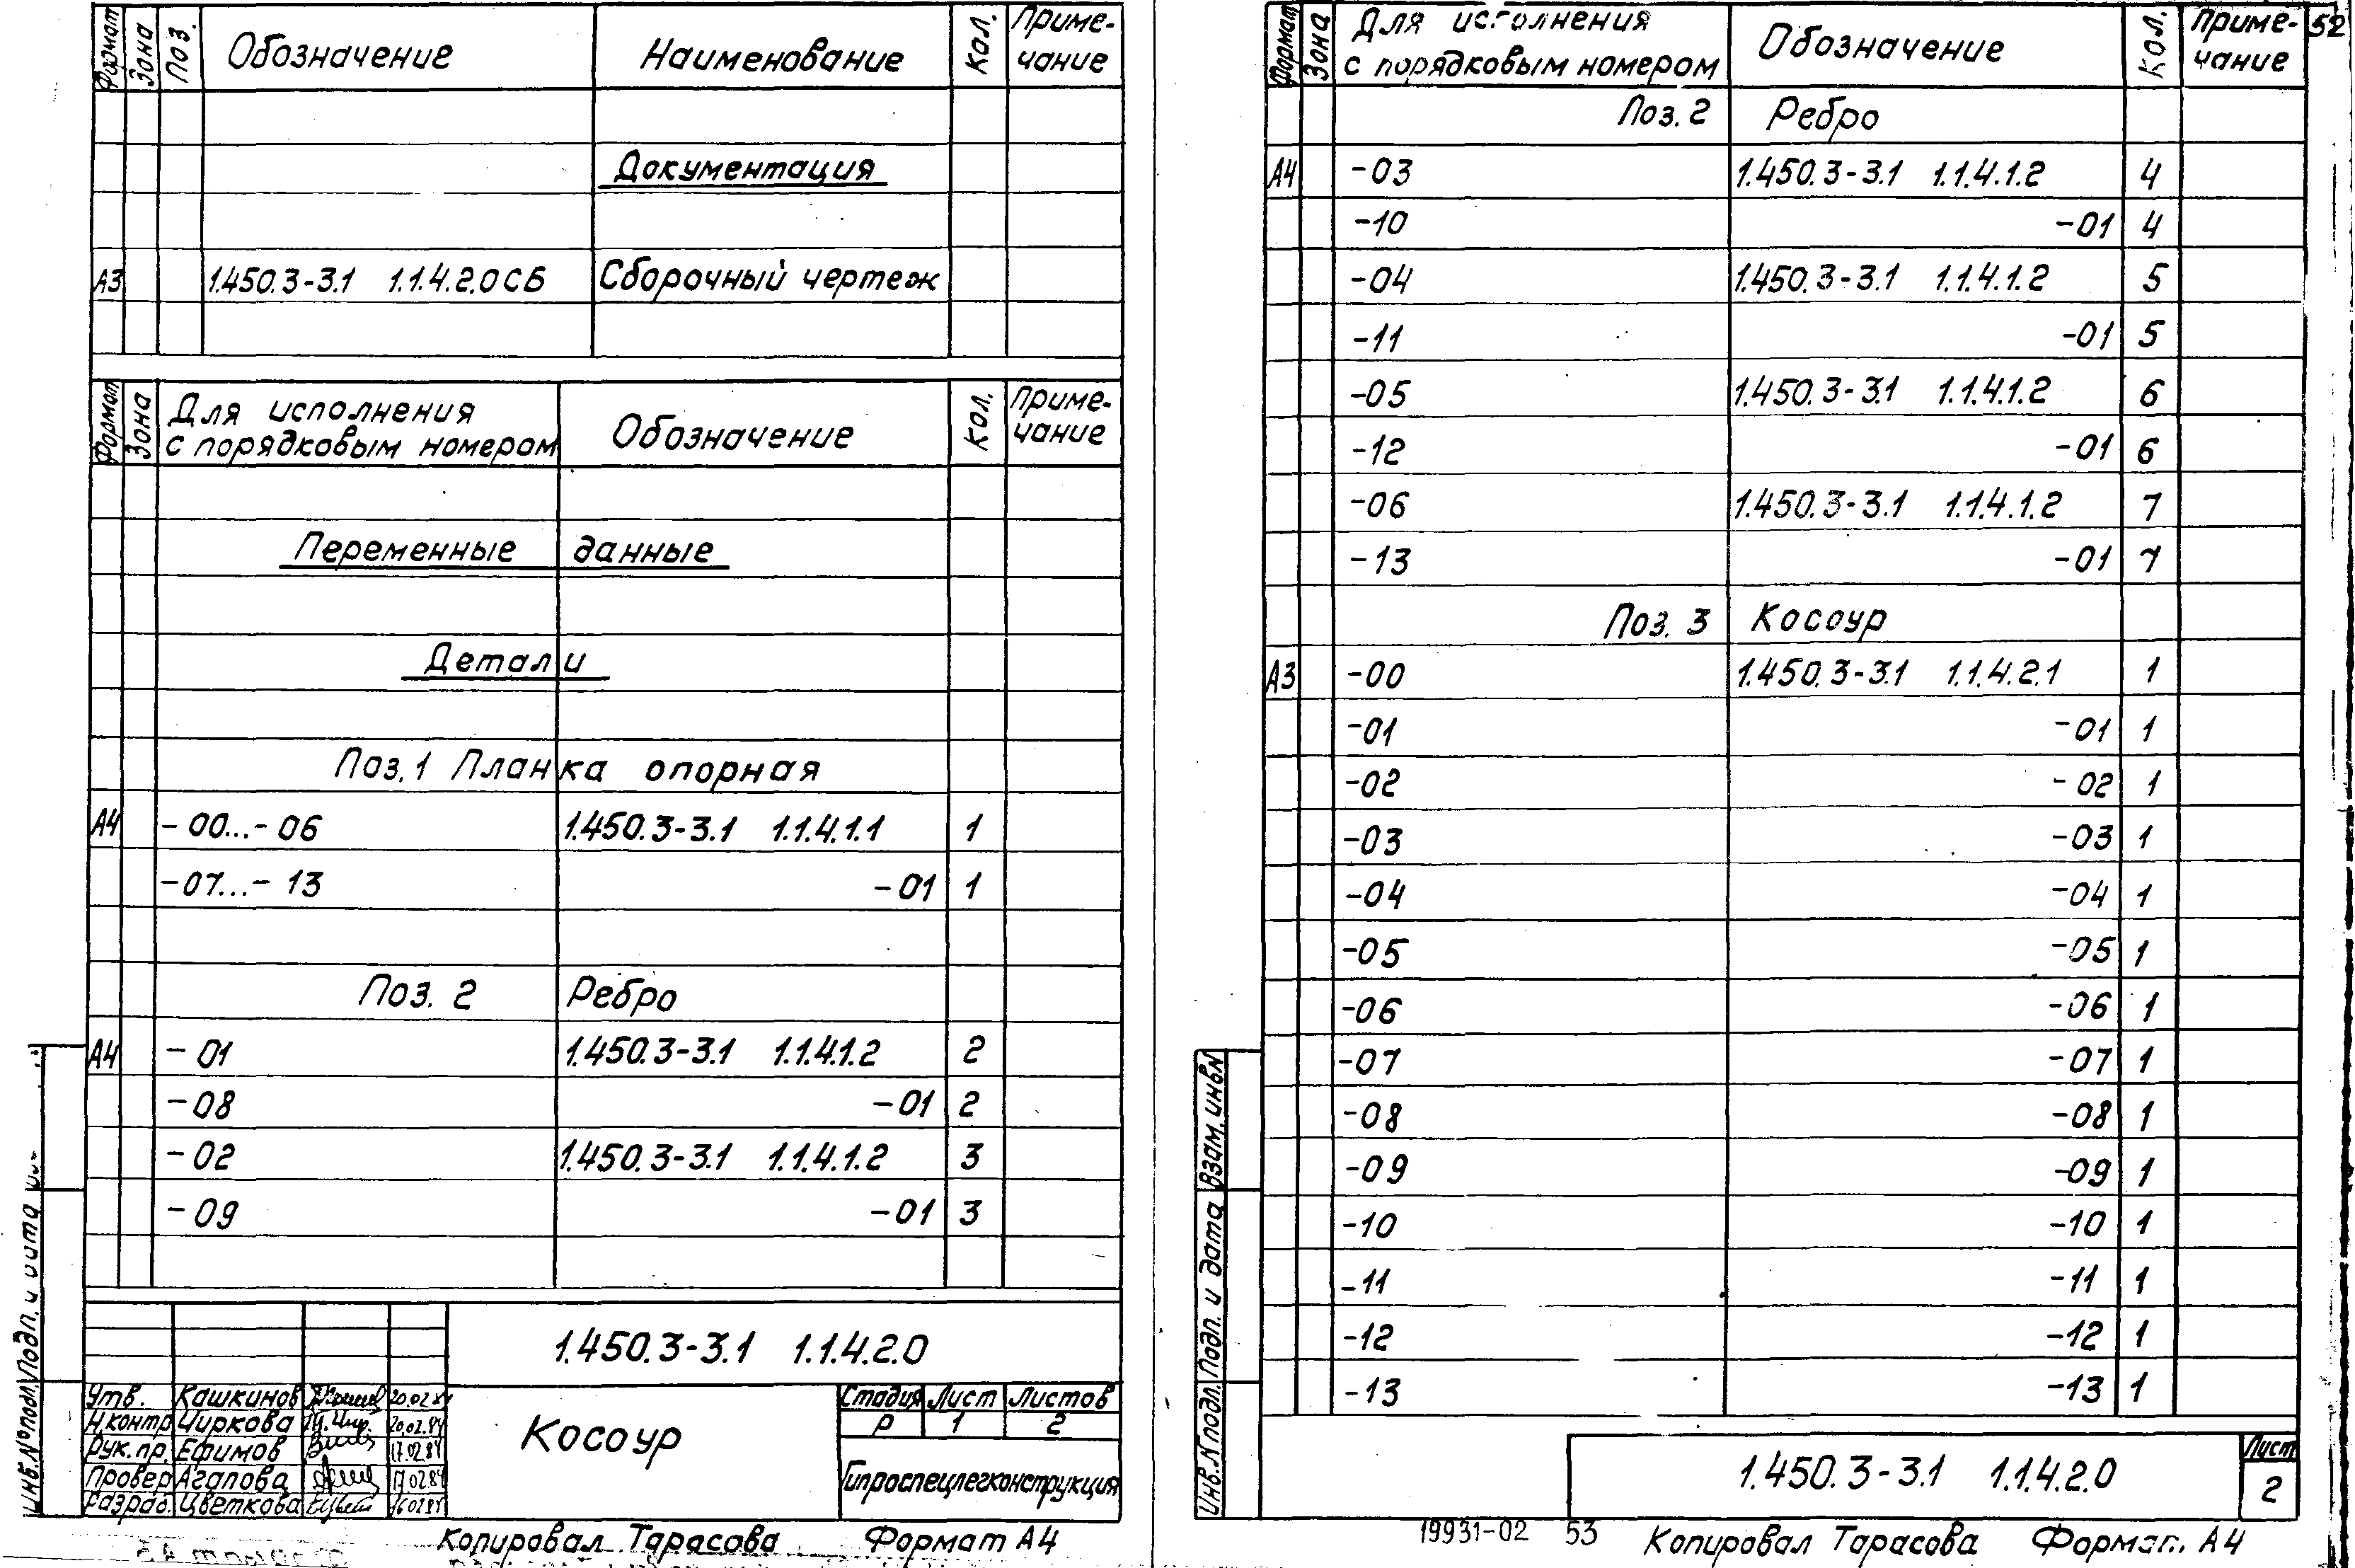 Формат Зона Поз. Обозначение Наименование Кол. Приме-
чание
Документация
А3 1.450.3-3.1 1.1.4.2.0СБ Сборочный чертеж
Формат Зона Для исполнения
с порядковым номером Обозначение Кол. Приме-
чание
Переменные данные
Детали
Поз.1 Планка опорная
А4 -00...-06 1.450.3-3.1 1.1.4.1.1 1
-07...-13 -01 1
Поз. 2 Ребро
А4 -01 1.450.3-3.1 1.1.4.1.2 2
-08 -01 2
-02 1.450.3-3.1 1.1.4.1.2 3
-09 -01 3
1.450.3-3.1 1.1.4.2.0
Утв. Кашкинов 20.02.84
Н.контр Чиркова 20.02.84
Рук.пр. Ефимов 17.02.84
Провер Агапова 17.02.84
Разраб. Цветкова 16.02.84
Косоур
Стадия Лист Листов
Р 1 2
Гипроспецлегконструкция
Инв.№подл. Подп. и дата
Копировал Тарасова Формат А4
52
Формат Зона Для исполнения
с порядковым номером Обозначение Кол. Приме-
чание
Поз. 2 Ребро
А4 -03 1.450.3-3.1 1.1.4.1.2 4
-10 -01 4
-04 1.450.3-3.1 1.1.4.1.2 5
-11 -01 5
-05 1.450.3-3.1 1.1.4.1.2 6
-12 -01 6
-06 1.450.3-3.1 1.1.4.1.2 7
-13 -01 7
Поз. 3 Косоур
А3 -00 1.450.3-3.1 1.1.4.2.1 1
-01 -01 1
-02 -02 1
-03 -03 1
-04 -04 1
-05 -05 1
-06 -06 1
-07 -07 1
-08 -08 1
-09 -09 1
-10 -10 1
-11 -11 1
-12 -12 1
-13 -13 1
Инв.№подл. Подп. и дата Взам.инв№
1.450.3-3.1 1.1.4.2.0
Лист
2
19931-02 53
Копировал Тарасова Формат А4